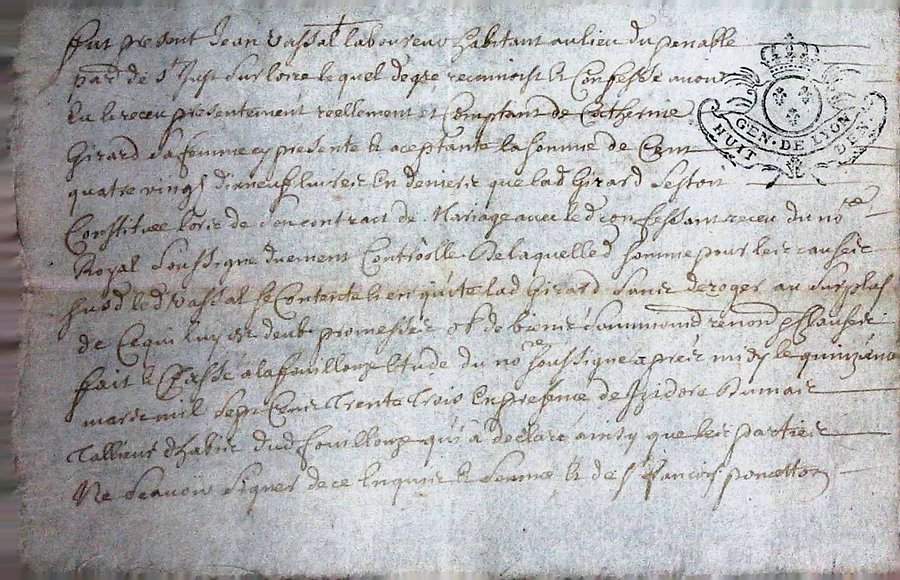 fut present Jean Vassal laboureur habitant au lieu du penable
parr de st Just sur loire lequel de gre reconnoist & Confesse avoir
Eu & receu presentement reellement et Comptant de Catherine
Girard sa femme cy presente & aceptante la somme de Cent
quatre vings dix neuf livres En deniers que lad Girard sestoit
Constituee Lors de son contract de Mariage avec led confessant receu du nore
Royal soussigne duement Controolle De laquelle d somme pour les causes
susd led Vassal se Contente & en quite lad Girard sans deroger au surplus
de Ce qui luy est deub promesses ob de biens sommond renond & clauses
fait & Passe a la fouillouze Etude du nore soussigne apres midy le quinzieme
mars mil sept Cens Trente Trois En presence de Izidore Dumas
Tallieur dhabis dud fouillouze qui a declare ainsy que les parties
Ne scavoir signer de ce Enquis & somme & de sr francois poncetton
GEN. DE LYON
HUIT DEN.